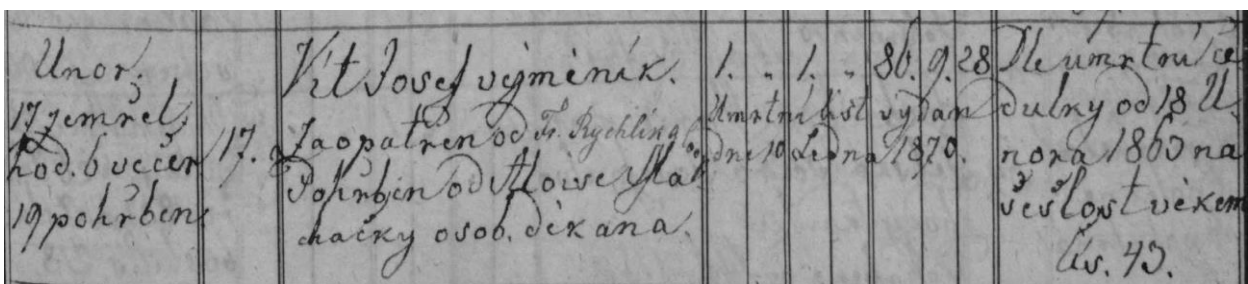 Unor.
17 zemřel
hod. 6 večer
19 pohřben.
17.
Vít Josef vejměník.
Zaopatřen od Fr. Rychlink
Pohřben od Aloise Ma
chačky osob. děkana.
1. " 1. " 86. 9. 28
Umrtní list vydán
dne 10 Ledna 1870.
Dle umrtní ce
dulky od 18 U
nora 1865 na
sešlost věkem
čís. 43.